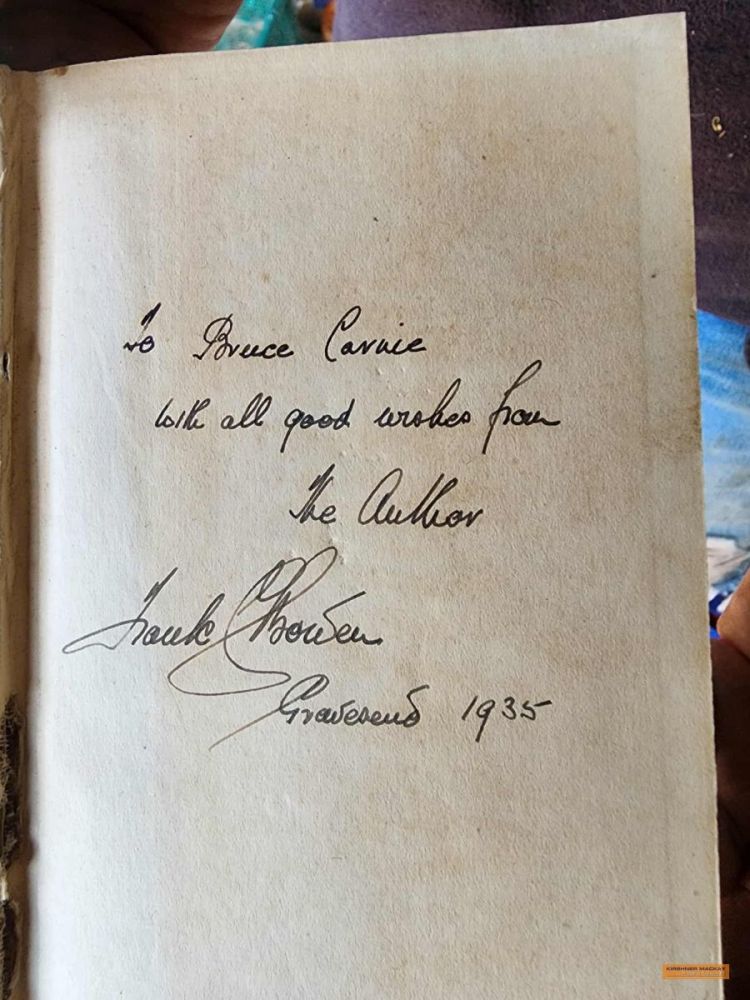 To Bruce Carnie
with all good wishes from
The Author
Frank C Bowen
Gravesend 1935
KIRSHNER MACKAY